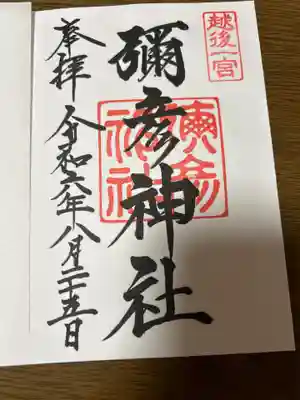 越後一宮
彌彦神社
彌彦
神社
奉拝 令和六年八月二十五日